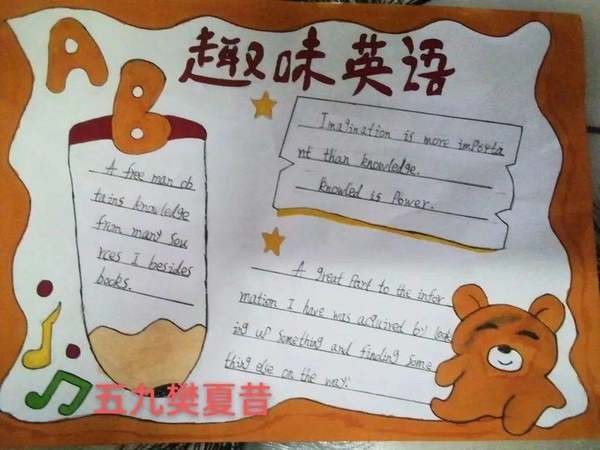 A
B
趣味英语
A free man ob
tains knowledge
from many sou
rces I besides
books.
Imagination is more importa
nt than knowledge.
Knowled is power.
A great part to the infor
mation I have was acquired by look
ing up something and finding some
thing else on the way.
五九樊夏昔